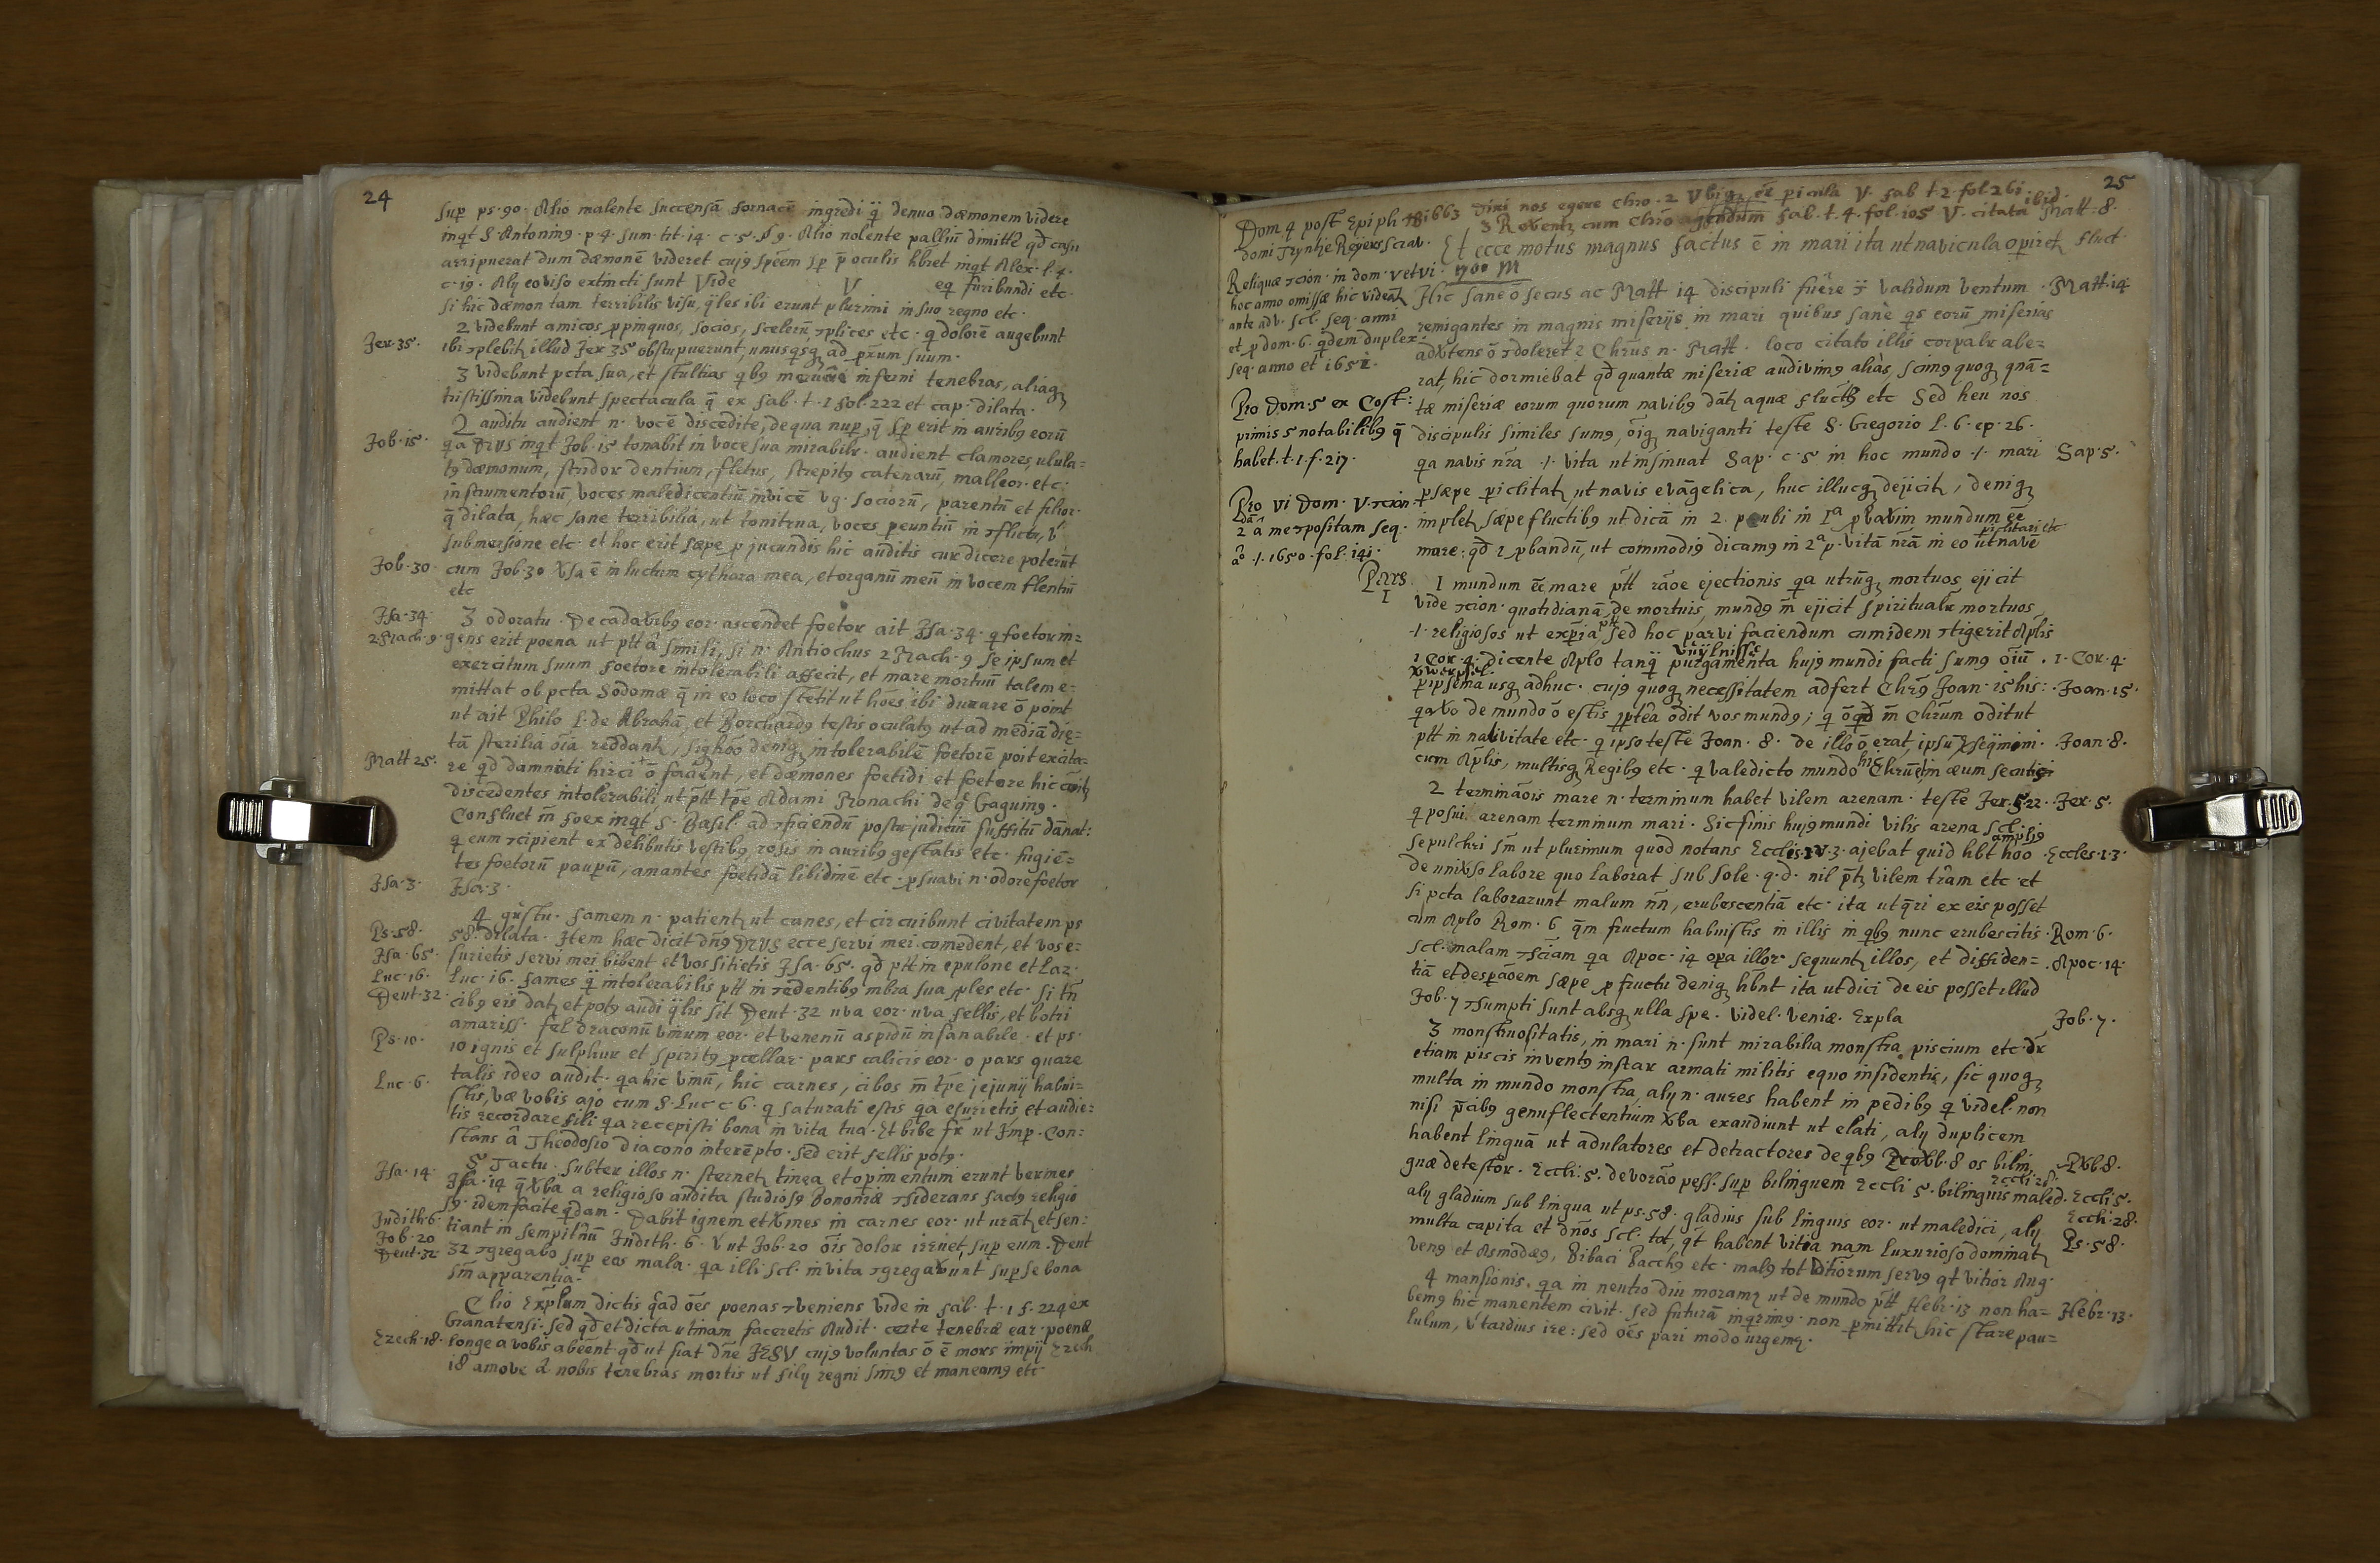 24
sup ps. 90. Alio malente succensā fornacē ingredi q̄ denuo dæmonem videre
inqt S. Antonin9. p. 4. sum. tit. 14. c. 5. §9. Alio nolente palliū dimitte qd casu
arripuerat dum dæmonē videret cuj9 spēm sp p̄ oculis hbret inqt Alex. l. 4.
c. 19. Alij eo viso extincti sunt Vide V eq furibundi etc.
si hic dæmon tam terribilis visu, q̄les ibi erunt plurimi in suo regno etc.
2 videbunt amicos, ppinquos, socios, scelerū, plices etc. q dolorē augebunt
Jer. 35. ibi plebit illud Jer 35 obstupuerunt, unusqsq ad pxum suum.
3 videbunt pcta sua, et stultias qb9 inferni tenebras, aliaq
tristissima videbunt spectacula q̄ ex fab. t. 1 fol. 222 et cap. dilata.
2 auditu audient n. vocē discedite, de qua nup, q̄ sp erit in aurib9 eorū
Job. 15. qa DEVS inqt Job. 15 tonabit in voce sua mirabilr. audient clamores, ulula=
t9 dæmonum, stridor dentium, fletus, strepit9 catenarū, malleor. etc.
instrumentorū, voces maledicentiū invicē vg. sociorū, parentū et filior.
q̄ dilata, hæc sane terribilia, ut tonitrua, voces peuntiū in flictu, v
submersione etc. et hoc erit sæpe p jucundis hic auditis cur dicere poterūt
Job. 30. cum Job. 30 vsa ē in luctum cythara mea, et organū meū in vocem flentiū
etc
Isa. 34. 3 odoratu. De cadavib9 eor. ascendet foetor ait Isa. 34. q foetor in=
2 Mach. 9. gens erit poena ut ptt â simili, si n. Antiochus 2 Mach. 9 se ipsum et
exercitum suum foetore intolerabili affecit, et mare mortuū talem e=
mittat ob pcta Sodomæ q̄ in eo loco stetit ut hoēs ibi durare ō point
ut ait Philo l. de Abrahā, et Borchard9 testis oculat9 ut ad mediā die=
tā sterilia oīa reddant, denīq intolerabilē foetorē poit excita=
Matt 25. re qd damnati hirci ō facient, et dæmones foetidi et foetore hic
discedentes intolerabili, ut ptt tpe Adami Monachi de q̄ Gaguin9.
Confluet m̄ foex inqt S. Basil. ad ficiendū post judiciū suffitū dānat:
q eum cipient ex delibutis vestib9 rosis in aurib9 gestatis etc. fugiē=
tes foetorū paupū, amantes foetidā libidinē etc. p suavi n. odore foetor
Isa. 3. Isa. 3.
4 gustu. famem n. patient ut canes, et circuibunt civitatem ps
Ps. 58. 58. dilata. Item hæc dicit dn̄9 DEVS ecce servi mei comedent, et vos e=
Isa. 65. surietis servi mei bibent et vos sitietis Isa. 65. qd ptt in epulone et Laz.
Luc. 16. Luc. 16. fames q̄ intolerabilis ptt in redentib9 mbra sua ples etc. si tn̄
Deut. 32. cib9 eis dat et pot9 audi q̄lis sit Deut. 32 uva eor. uva fellis, et botri
amariss. fel draconū vinum eor. et venenū aspidū insanabile. et ps.
Ps. 10. 10 ignis et sulphur et spirit9 pcellar. pars calicis eor. o pars quare
talis ideo audit. qa hic vinū, hic carnes, cibos m̄ tpe jejunij habui=
Luc. 6. stis, væ vobis ajo cum S. Luc. c. 6. q saturati estis qa esurietis, et audie=
tis recordare fili qa recepisti bona in vita tua. Et bibe fr ut Imp. Con=
stans â Theodosio diacono interēpto. sed erit fellis pot9.
5 Tactu. Subter illos n. sternet tinea et opimentum erunt vermes
Isa. 14. Isa. 14 q̄ vba a religioso audita studios9 Bononiæ siderans fact9 religio
s9. idem facite qdam. Dabit ignem et vmes in carnes eor. ut urāt et sen=
Judith. 6. tiant in sempitnū Judith. 6. v ut Job. 20 oīs dolor irruet sup eum. Deut
Job. 20
Deut. 32 32 gregabo sup eos mala. qa illi scl. in vita gregarunt sup se bona
sm̄ apparentiā.
Clio Explum dictis qad oēs poenas veniens vide in fab. t. 1 f. 224 ex
Granatensi. sed qd et dicta utinam faceretis Audit. certe tenebræ ear. poenæ
Ezech. 18. longe a vobis abeēnt. qd ut fiat dn̄e JESV cuj9 voluntas ō ē mors impij Ezech
18 amove â nobis tenebras mortis ut filij regni sim9 et maneam9 etc
25
Dom 4 post Epiph 1663 dixi nos egere Chro. 2 Vbiq ēe picula V. fab t. 2. fol 261 ibid.
domi Tryntje Reyers sciav. 3 Roventz cum Chro agendum fab. t. 4. fol. 105 V. citata Matt. 8.
Et ecce motus magnus factus ē in mari ita ut navicula opiret fluct.
Reliquæ cion. in dom. v et vi. 1700 M
hoc anno omissæ hic vident Hic sane ō secus ac Matt 14 discipuli fuēre validum ventum Matt. 14
ante adv. scl. seq. anni remigantes in magnis miserijs in mari quibus sanè qs eorū miserias
et p dom. 6. qdem duplex. advtens ō doleret? Chrūs n. Matt. loco citato illis corpalr abe=
seq. anno et 1651. rat, hic dormiebat qd quantæ miseriæ audivim9 aliàs, scim9 quoq qnā=
Pro Dom. 5 ex Cost: tæ miseriæ eorum quorum navib9 dāt aquæ fluct9 etc Sed heu nos
primis 5 notabilib9 q̄ discipulis similes sum9, oīq naviganti teste S. Gregorio l. 6. ep. 26.
habet. t. 1. f. 217. qa navis nr̄a .1. vita ut insinuat Sap. c. 5 in hoc mundo .1. mari Sap. 5.
Pro VI Dom. V. cion psæpe piclitat ut navis evāgelica, huc illucq dejicit, deniq
2â me positam seq. implet sæpe fluctib9 ut dicā in 2. p ubi in 1a pbavim mundum ēe
â .1. 1650. fol. 141. mare: qd 2 pbandū, ut commodi9 dicam9 in 2a p. vitā nr̄ā in eo ut navē piclitari etc
Pars I 1 mundum ēe mare ptt rāoe ejectionis qa utrūq mortuos ejicit
vide cion. quotidianā de mortuis, mund9 m̄ ejicit spiritualr mortuos
.1. religiosos ut expīa ptt sed hoc parvi faciendum cum idem tigerit Aplis
1 Cor. 4. dicente Aplo tanq̄ purgamenta huj9 mundi facti sum9 oīū 1. Cor. 4.
pipsema usq adhuc. cuj9 quoq necessitatem adfert Chr9 Joan. 15 his: Joan. 15.
qa vo de mundo ō estis pptēa odit vos mund9; q m̄ Chrūm odit ut
ptt in nativitate etc. q ipso teste Joan. 8. de illo ō erat, ipsū Joan. 8.
cum Aplis, multisq Regib9 etc. q valedicto mundo hic Chrūm in æum
2 terminaōis mare n. terminum habet vilem arenam. teste Jer. 5. 22. Jer. 5.
q posui arenam terminum mari. Sic finis huj9 mundi vilis arena scl.
sepulchri sm̄ ut plurimum quod notans Eccles. 1. V. 3. ajebat quid hbt hoō ampli9 Eccles. 1. 3.
de univso labore quo laborat sub sole. q. d. nil pt vilem trām etc. et
si pcta laborarunt malum nn̄, erubescentiā etc. ita ut qri ex eis posset
cum Aplo Rom. 6 q̄m fructum habuistis in illis in qb9 nunc erubescitis Rom. 6.
scl. malam sciam qa Apoc. 14 opa illor. sequunt illos, et diffiden= Apoc. 14.
tiā et despāoem sæpe p fructu deniq hbnt ita ut dici de eis posset illud
Job. 7 sumpti sunt absq ulla spe. videl. veniæ. Expla Job. 7.
3 monstruositatis, in mari n. sunt mirabilia monstra piscium etc. dr
etiam piscis invent9 instar armati militis equo insidentis, sic quoq
multa in mundo monstra, alij n. aures habent in pedib9 q videl. non
nisi pcib9 genuflectentium vba exaudiunt ut elati, alij duplicem
habent linguā ut adulatores et detractores de qb9 Provb. 8 os bilin Pvb. 8.
guæ detestor. Eccli. 5. devorāo pess. sup bilinguem Eccli 5. bilinguis maled. Eccli 28. Eccli. 5.
alij gladium sub lingua ut ps. 58. gladius sub linguis eor. ut maledici, alij Eccli. 28.
multa capita et dn̄os scl. tot, qt habent vitia nam luxurioso dominat Ps. 58.
ven9 et Asmodæ9, Bibaci Bacch9 etc. mal9 tot vitiorum serv9 qt vitior Aug.
4 mansionis. qa in neutro diu moram ut de mundo ptt Hebr. 13 non ha= Hebr. 13.
bem9 hic manentem civit. sed futurā inqrim9. non pmittit hic stare pau=
lulum, v tardius ire: sed oēs pari modo urgem9.